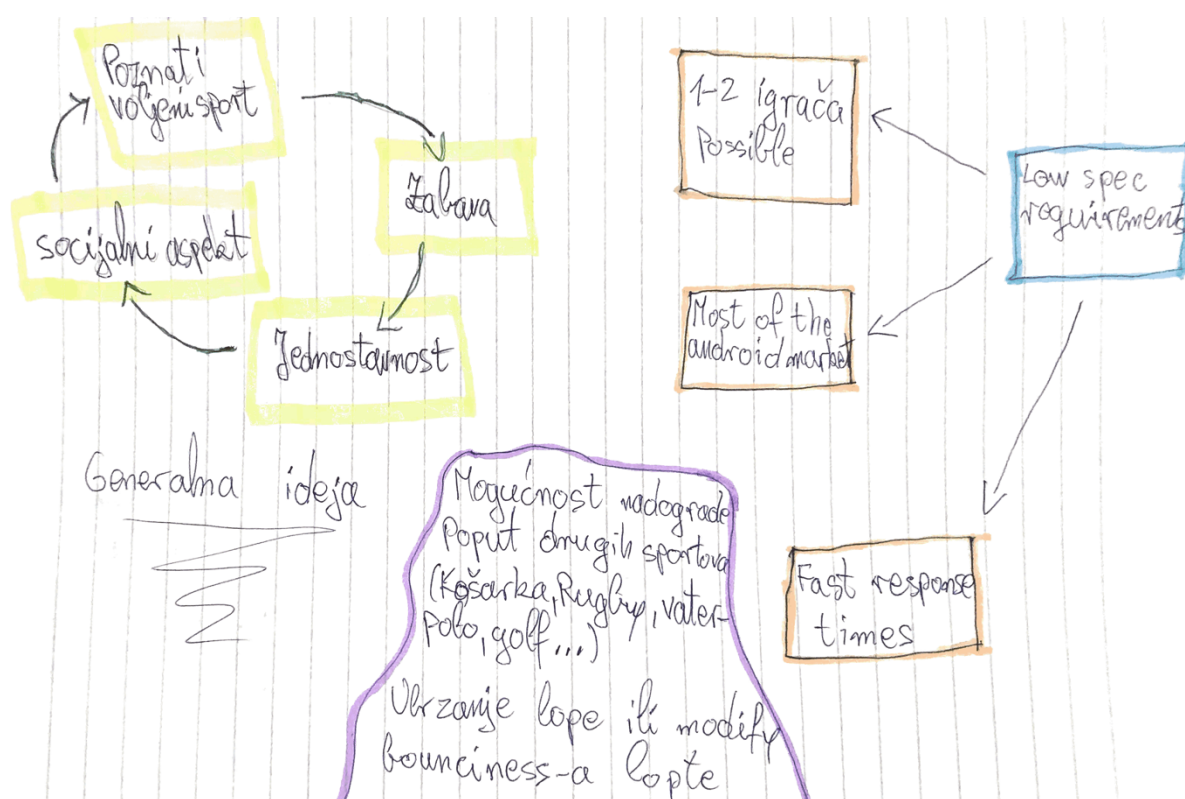 Poznat i
voljeni sport
Zabava
Jednostavnost
socijalni aspekt
1-2 igrača
Possible
Low spec
requirements
Most of the
android market
Fast response
times
Generalna ideja
Mogućnost nadograde
Poput drugih sportova
(Košarka, Rugby, vater-
polo, golf...)
Ubrzanje lope ili modify
bounciness-a lopte